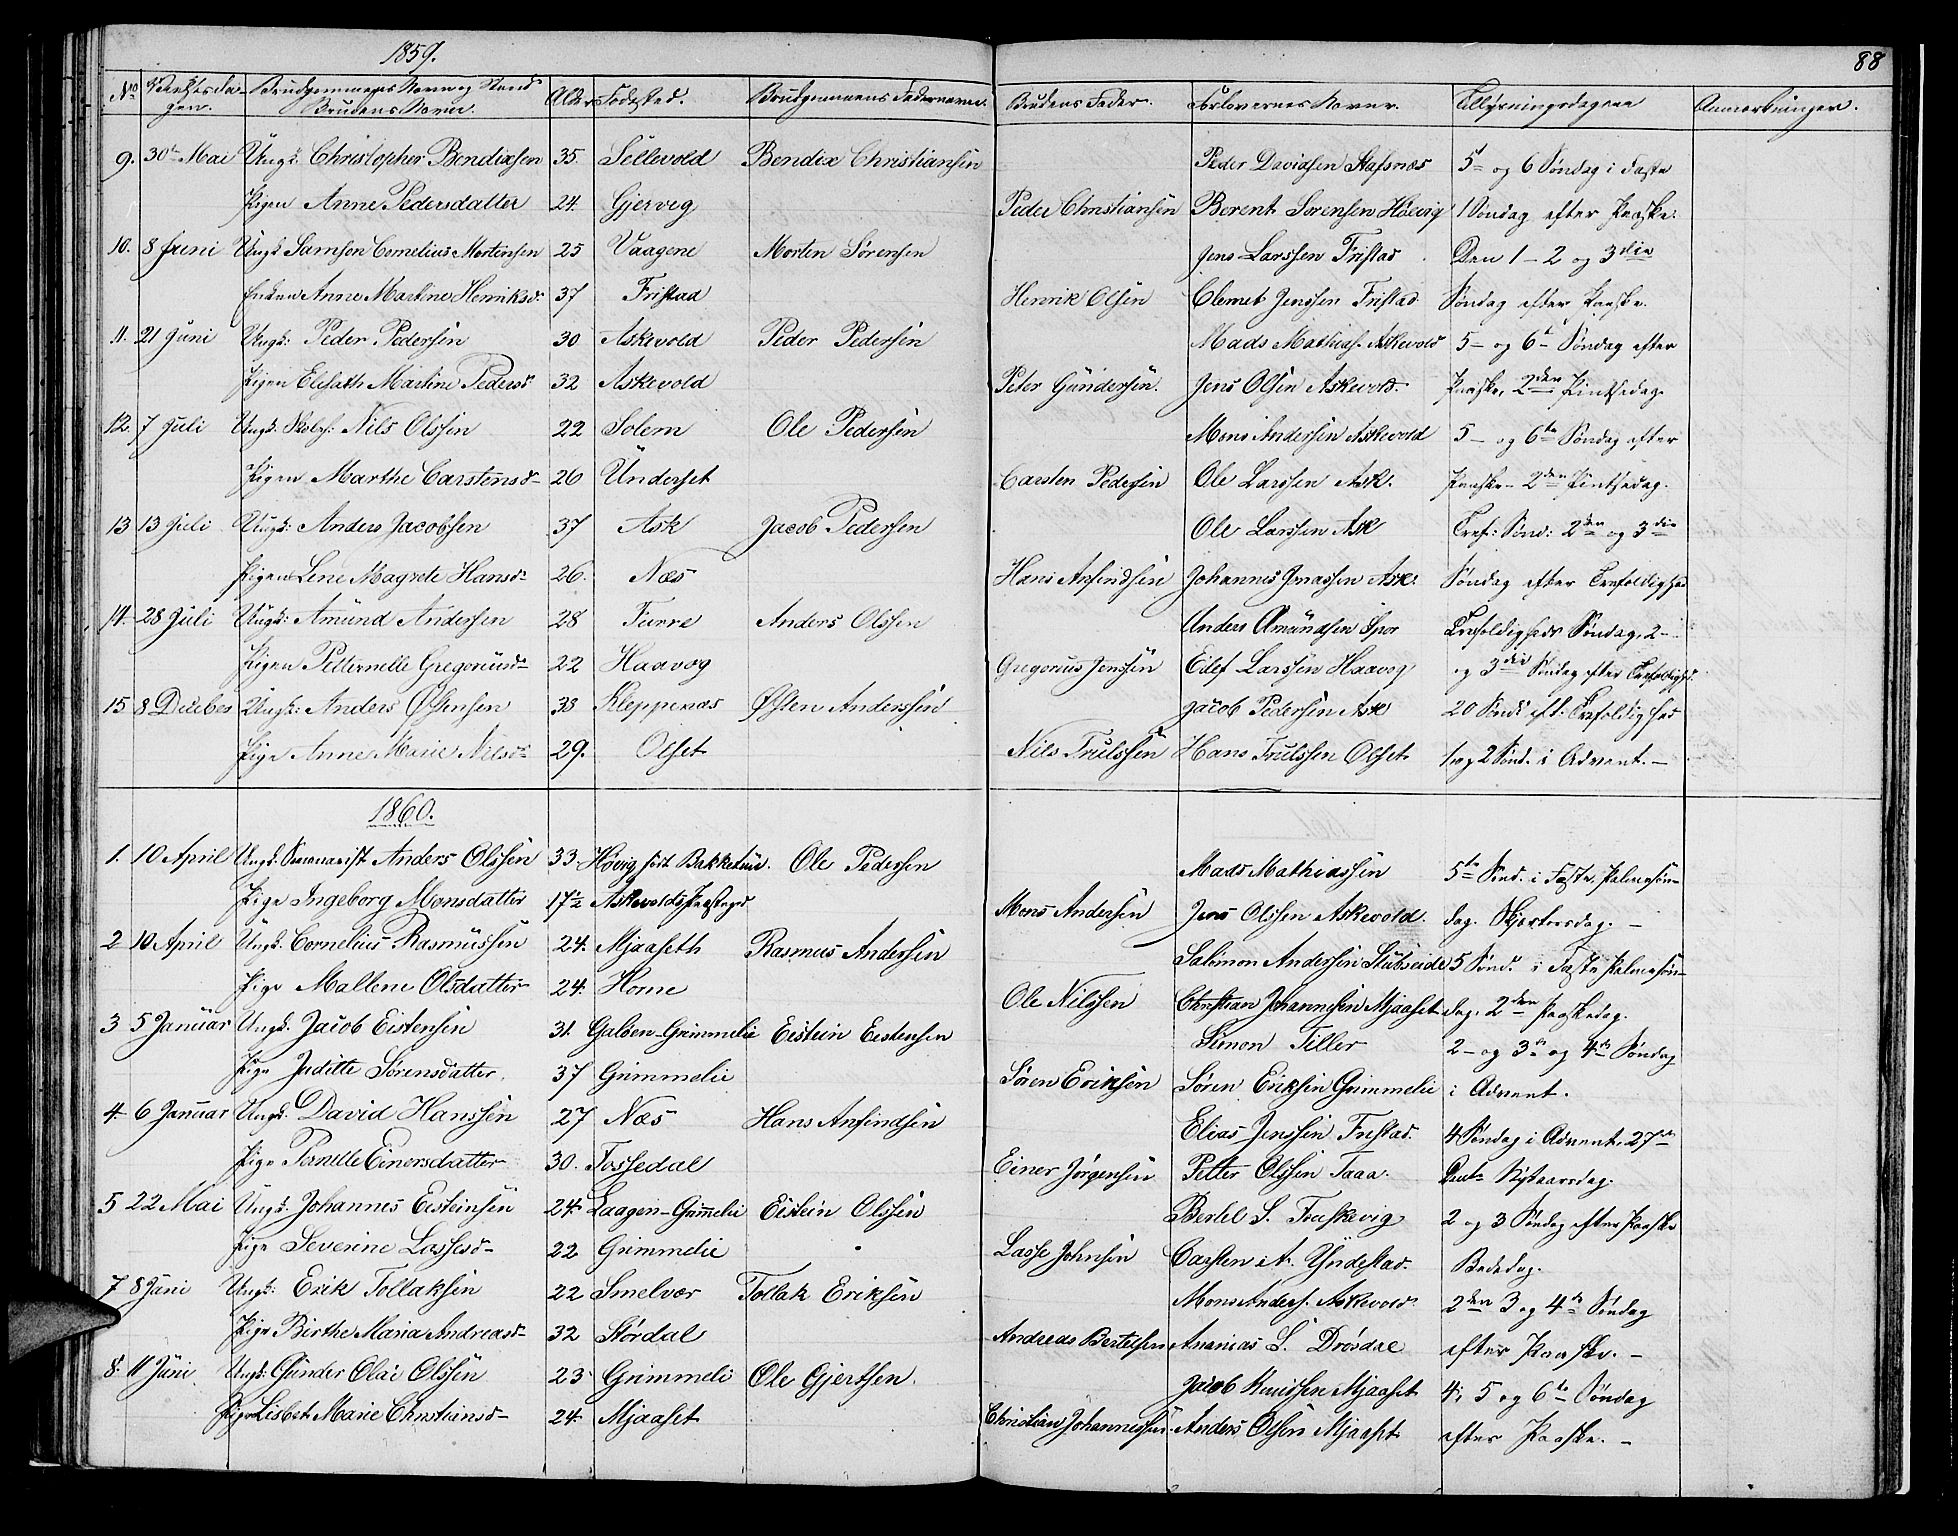 1859.
88
No Vielsesdagen. Brudgommens Navn og Stand Brudens Navn. Alder Fødested. Brudgommens Fadernavn. Brudens Fader. Forlovernes Navne. Tillysningsdagene Anmærkninger.
9. 30te Mai Ungk. Christopher Bendixsen 35. Sellevold Bendix Christiansen Peder Davidsen Stafsnæs 5te og 6 Søndag i Faste
Pigen Anne Pedersdatter 24. Gjerveg Peder Christiansen Berent Sørensen Høevig 1 Søndag efter Paaske.
10. 8 Juni Ungk. Samson Cornelius Mortensen 25 Vaagene Morten Sørensen Jens Larssen Fristad Den 1- 2 og 3die
Enken Anne Martine Henriksd. 37 Fristad Henrik Olsen Clemet Jenssen Fristad Søndag efter Paaske.
11. 21 Juni Ungk: Peder Pedersen 30 Askevold Peder Pedersen Mads Mathias. Askevold 5- og 6te Søndag efter
Pigen Elisabth Martine Pedersd. 32 Askevold Peter Gundersen. Jens Olsen Askevold. Paaske, 2den Pintsedag.
12. 7 Juli Ungk. Skolh: Nils Olssen 22 Solem Ole Pedersen Mons Andersen Askevold 5- og 6te Søndag efter
Pigen Marthe Carstensd- 26 Underset Carsten Pedersen Ole Larssen Ask. Paaske- 2den Pintsedag.
13 13 Juli Ungk: Anders Jacobsen 37 Ask Jacob Pedersen Ole Larssen Ask Tref: Sønd: 2den og 3die
Pigen Lene Magrete Hansd- 26. Næs Hans Anfindsen Johannes Jonassen Ask. Søndag efter Trefoldighed
14. 28 Juli Ungk: Amund Andersen 28 Furre Anders Olssen Anders Amundsen Spor Trefoldigheds Søndag, 2-
Pigen Petternelle Gregoriusd- 22 Haavog Gregorius Jonssen Edef Larssen Haavog og 3die Søndag efter Trefoldighd.
15 8 Decber Ungk: Anders Østensen 38 Kleppenæs Østen Anderssen Jacob Pedersen Ask 20 Sønd: eft: Trefoldighed
Pige Anne Marie Nilsd- 29. Olset Nils Trulssen Hans Trulssen Olset. 1 og 2 Sønd. i Advent.-
1860.
1. 10 April Ungk. Seminarist Anders Olssen 33. Høvig født Bakketun. Ole Pedersen Mads Mathiassen 5te Sønd. i Faste, Palmesøn-
Pige Ingeborg Monsdatter 17½ Askevolds Præstegd Mons Andersen Jens Olssen Askevold. dag. Skjertorsdag. -
2 10 April Ungk. Cornelius Rasmussen 24. Mjaaseth Rasmus Andersen Salomon Andersen Stubseide 5 Sønd. i Faste Palmesøn-
Pige Mallene Olsdatter 24. Horne Ole Nilssen Christian Johannesen Mjaaset dag, 2den Paaskedag.
3 5 Januar Ungk. Jacob Eistensen 31. Galben-Grimmelie Eistein Eestensen Simon Tiller 2- og 3de og 4de Søndag
Pige Juditte Sørensdatter. 37 Grimmelie Søren Eriksen Søren Eriksen Grimmelie i Advent.
4. 6 Januar Ungk. David Hanssen 27 Næs Hans Anfindsen Elias Jenssen Fristad. 4 Søndag i Advent. 27de
Pige Pernelle Einersdatter 30. Fossedal Einer Jørgensen Petter Olssen Taaa. Dec. Nytaarsdag.
5 22 Mai Ungk. Johannes Eesteinsen 24. Laagen-Grimmelie Eistein Olssen Bertel S. Fraskevig 2 og 3 Søndag efter Paaske
Pige Severine Lassesd- 22 Grimmelie Lasse Johnsen Carsten A. Yndestad. Bededag.
7 8 Juni Ungk: Erik Tollaksen 22 Smelvær Tollak Eriksen Mons Anders. Askevold. 2den 3 og 4de Søndag
Pige Birthe Maria Andreasd- 32 Stordal Andreas Bertelsen Ananias S. Drøsdal efter Paaske. -
8. 11 Juni Ungk: Gunder Olai Olssen 23 Grimmeli Ole Gjertsen. Jacob Knudssen Mjaaset 4, 5 og 6te Søndag
Pige Lisbet Marie Christiansd- 24. Mjaaset Christian Johannessen Anders Olsen Mjaaset efter Paaske. -